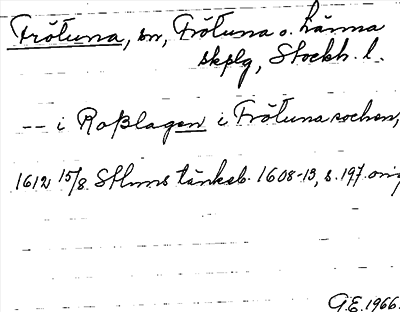 Frötuna, sn, Frötuna o. Länna
skplg, Stockh. l.
-- i Roßlagen i Frötuna sochen,
1612 15/8 Sthms tänkeb. 1608-13, s. 197. orig
G.E. 1966.